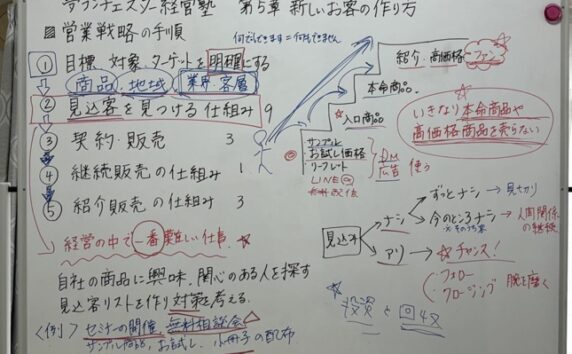 ランチェスター経営塾 第5章 新しいお客の作り方
営業戦略の手順
① 目標、対象、ターゲットを明確にする
商品、地域、業界・客層
② 見込客を見つける仕組み 9
③ 契約・販売 3
④ 継続販売の仕組み 1
⑤ 紹介販売の仕組み 3
経営の中で一番難しい仕事
自社の商品に興味、関心のある人を探す
見込客リストを作り対策を考える
〈例〉セミナーの開催、無料相談会
お試し、小冊子の配布
何でもできます=何もできません
紹介・高価格 ファン
本命商品
入口商品
サンプル
お試し価格
リーフレット
LINE
配信
DM
広告
使う
いきなり本命商品や
高価格商品を売らない
見込客
ナシ
ずっとナシ → 見切り
今のところナシ → 人間関係の継続
アリ → チャンス!
フォロー
クロージング
腕を磨く
投資と回収